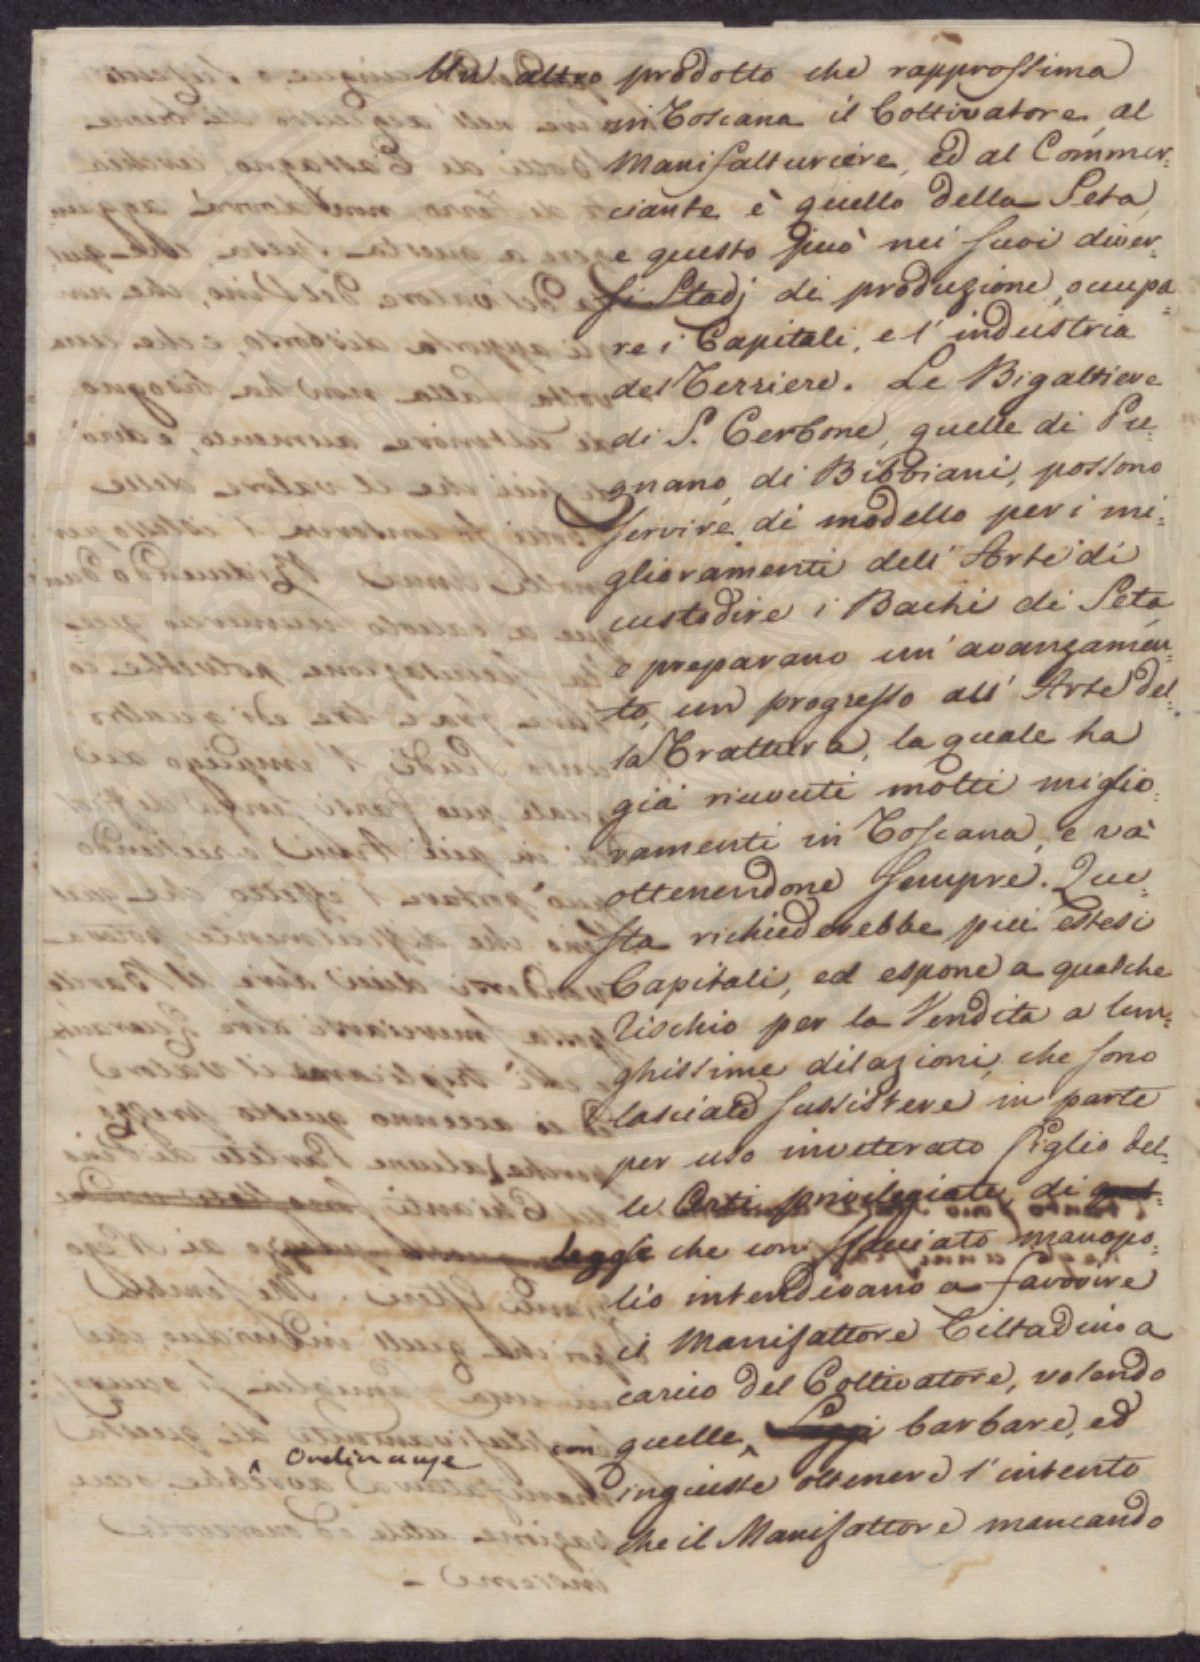 Un altro prodotto che rapprossima
in Toscana il Coltivatore, al
Manifatturiere, ed al Commer-
ciante è quello della Seta,
e questo può nei suoi diver-
si Stadj di produzione, occupa-
re i Capitali, e l'industria
del Terriere. Le Bigattiere
di S. Cerbone, quelle di Pu-
gnano, di Bibbiani, possono
servire di modello per i mi-
glioramenti dell'Arte di
custodire i Bachi di Seta
e preparano un'avanzamen-
to, un progresso all'Arte del-
la Trattura, la quale ha
già ricevuti molti miglio-
ramenti in Toscana, e và
ottenendone sempre. Que-
sta richiederebbe più estesi
Capitali, ed espone a qualche
Rischio per la Vendita a lun-
ghissime dilazioni, che sono
lasciate sussistere in parte
per uso inveterato figlio del-
le Arti privilegiate, di
Leggi che con sfacciato manopo-
lio intendevano a favorire
il Manifattore Cittadino a
carico del Coltivatore, volendo
con quelle Leggi barbare, ed
Ordinanze
ingiuste ottenere l'intento
che il Manifattore mancando